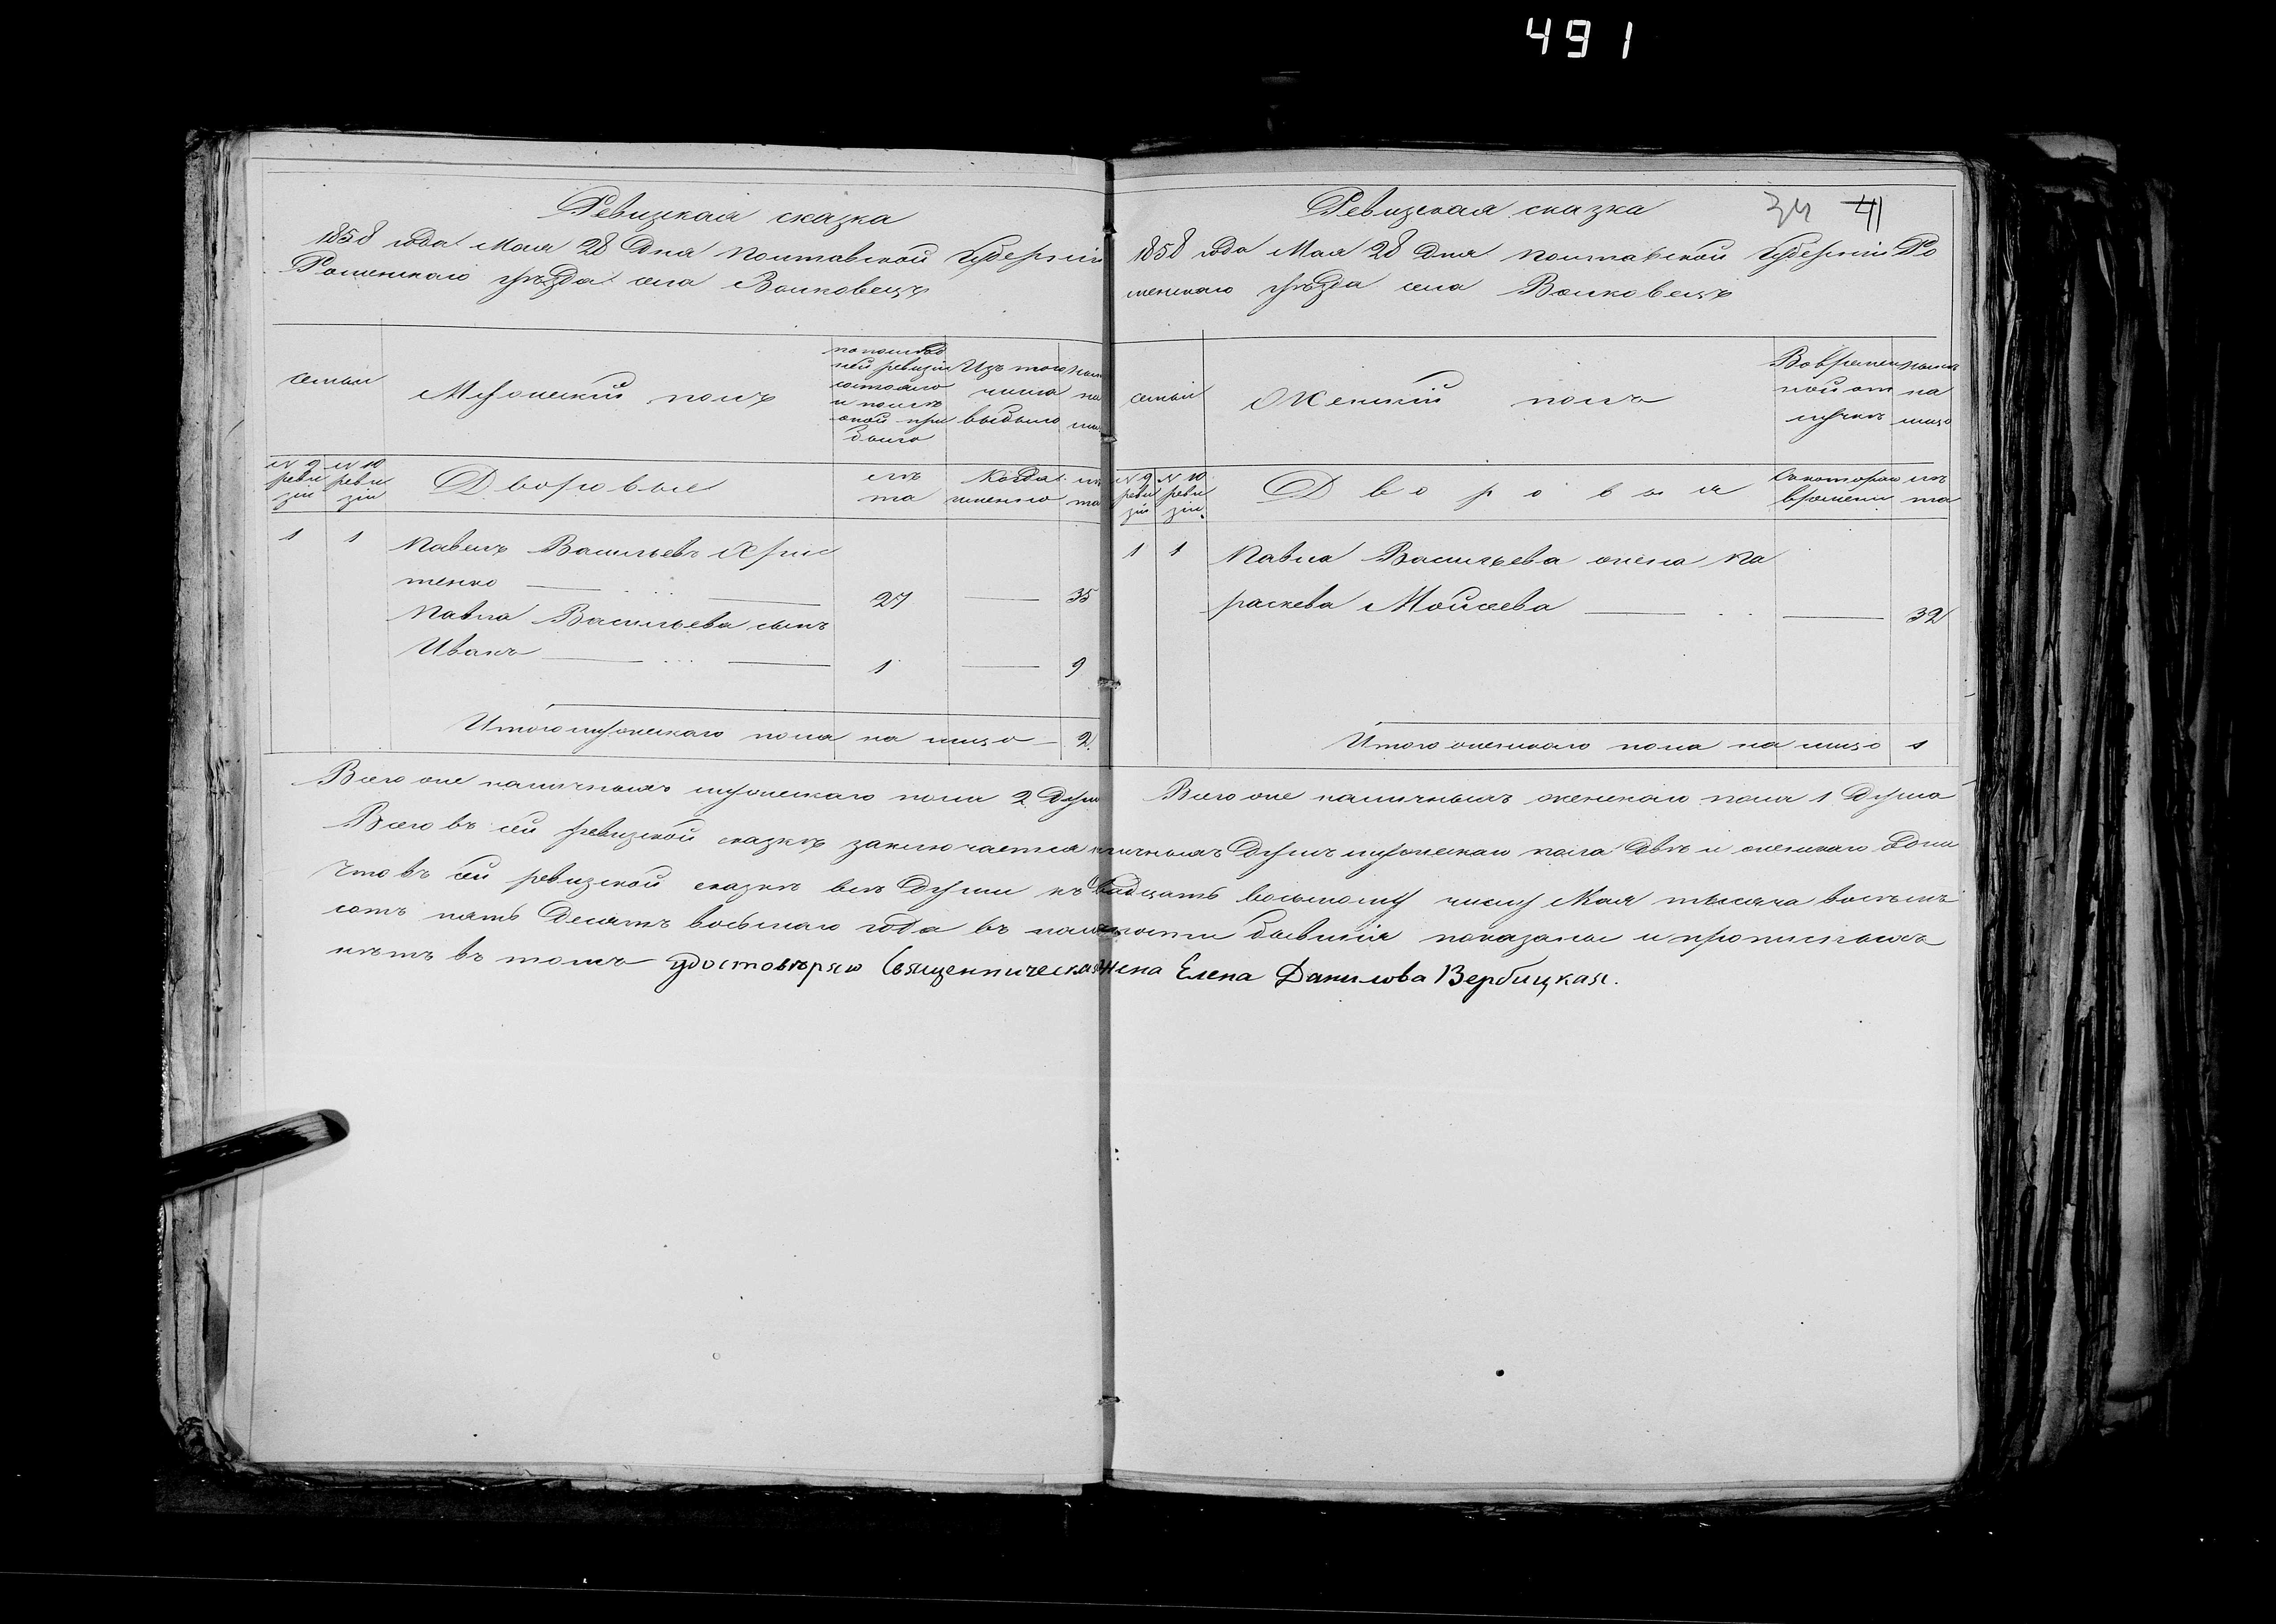 491
Ревизкая сказка
1858 года Мая 28 дня Полтавской Губерніи
Роменскаго уѣзда села Волковецъ
семьи
Мужеский полъ
по послѣд
ней ревизіи
состояло
и послѣ
оной при
было
Изъ того
числа
выбыло
Ныне
на
ли
№ 9
реви
зіи
№ 10
реви
зіи
Дворовые
лѣ
та
когда
именно
лѣ
та
1 1 Павелъ Васильевъ Хрис
тенко 27 35
Павла Васильева сынъ
Иванъ 1 9
Итого мужескаго пола на лицо 2
Всего оне наличныхъ мужескаго пола 2 души
Ревизская сказка
34 41
1858 года Мая 28 дня Полтавской Губерніи Ро
менскаго уѣзда села Волковецъ
семьи
Женский полъ
Во времен
ной от
лучкѣ
Нынѣ
на
лицо
№ 9
реви
зіи
№ 10
реви
зіи
Дворовыя
Съ котораго
времени
лѣ
та
1 1 Павла Васильева жена Па
раскева Мойсеева 32
Итого женскаго пола на лицо 1
Всего оне наличныхъ женскаго пола 1 душа
Всего въ сей ревизской сказкѣ заключается наличныхъ душъ мужескаго пола двѣ и женскаго одна
Что въ сей ревизской сказкѣ все души къ двадцать восьмому числу Мая тысяча восемь
сотъ пять десятъ восьмаго года въ наличности бывшія показаны и прописныхъ
нѣтъ въ томъ удостовѣряю Священническая жена Елена Данилова Вербицкая.